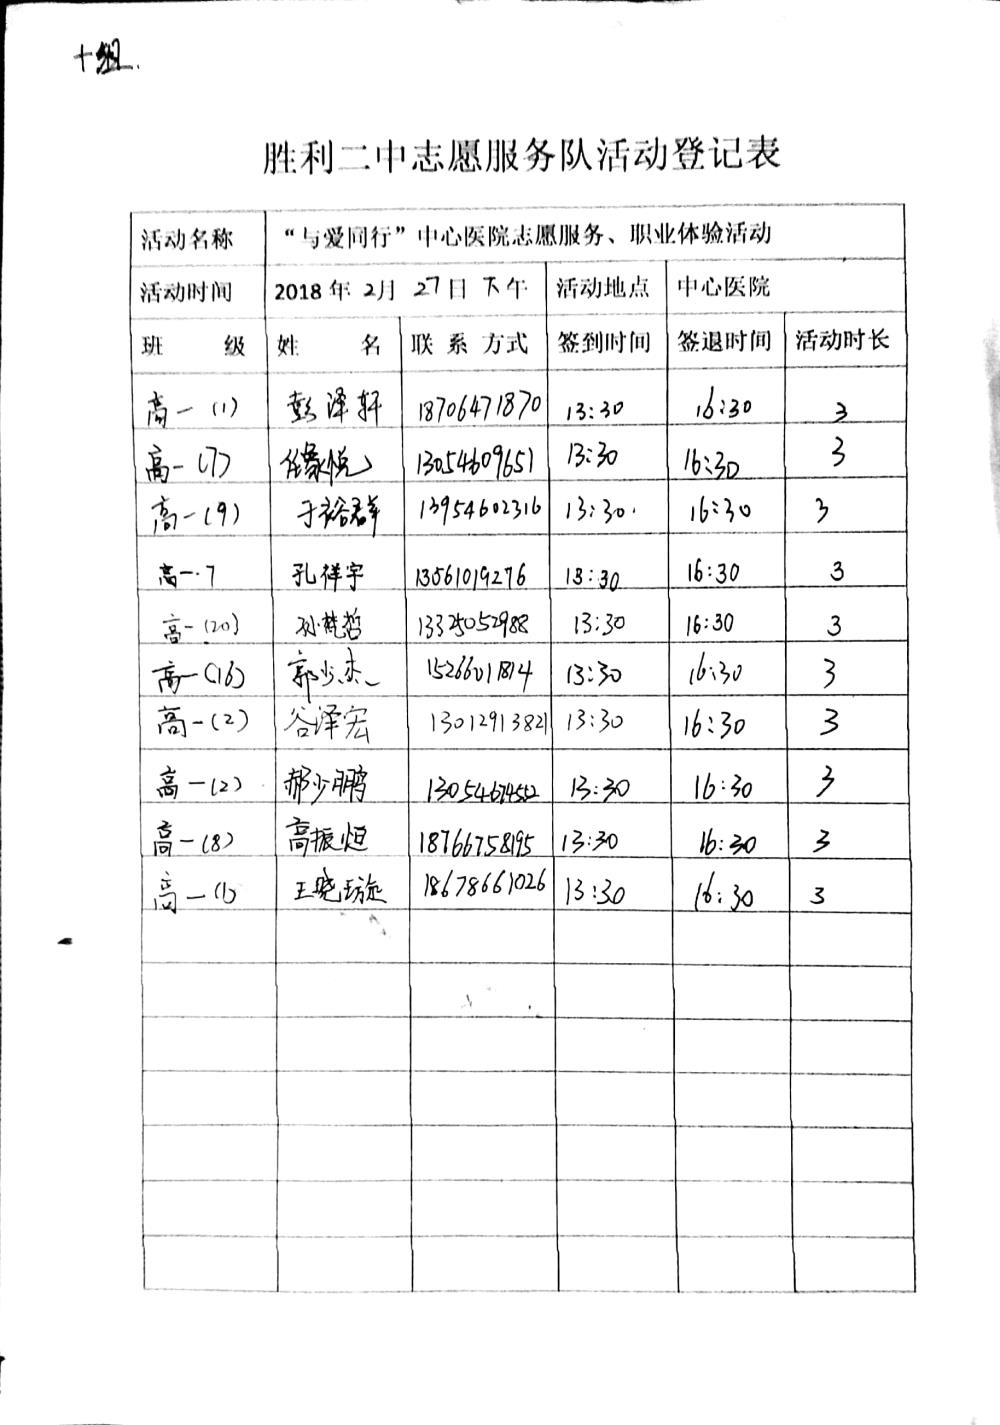 十组.
胜利二中志愿服务队活动登记表
活动名称 “与爱同行”中心医院志愿服务、职业体验活动
活动时间 2018年2月27日下午 活动地点 中心医院
班级 姓名 联系方式 签到时间 签退时间 活动时长
高一(1) 彭泽轩 18706471870 13:30 16:30 3
高一(7) 任豪悦 13054609651 13:30 16:30 3
高一(9) 于裕群 13954602316 13:30. 16:30 3
高一.7 孔祥宇 13561019276 13:30 16:30 3
高一(20) 孙梵哲 13325052988 13:30 16:30 3
高一(16) 郭少杰 1526601814 13:30 16:30 3
高一(2) 谷泽宏 13012913821 13:30 16:30 3
高一(2) 郝少鹏 13:30 16:30 3
高一(8) 高振恒 18766758195 13:30 16:30 3
高一(1) 王晓璇 18678661026 13:30 16:30 3